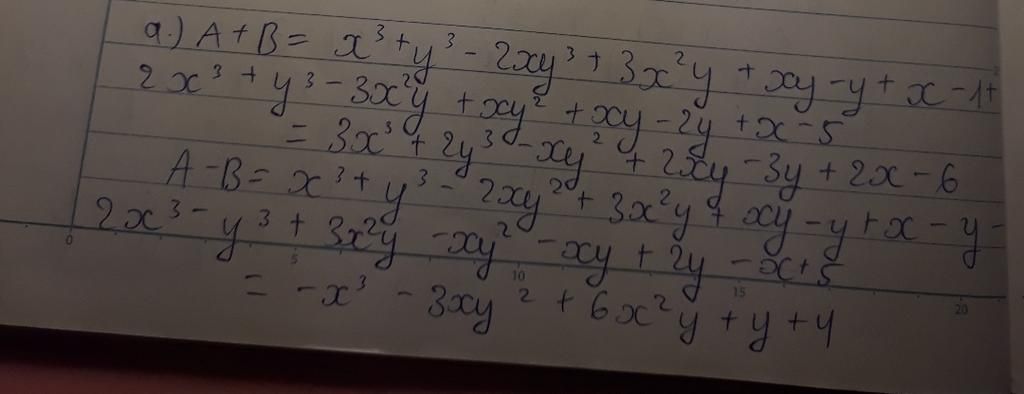 a.) A+B = x³+y³ - 2xy³ + 3x²y + xy - y + x - 1+
2x³ + y³ - 3x²y + xy² + xy - 2y + x - 5
= 3x³ + 2y³ - xy² + 2xy - 3y + 2x - 6
A - B = x³ + y³ - 2xy² + 3x²y + xy - y + x - y -
2x³ - y³ + 3x²y - xy² - xy + 2y - x + 5
0 5 10 15 20
= -x³ - 3xy² + 6x²y + y + 4